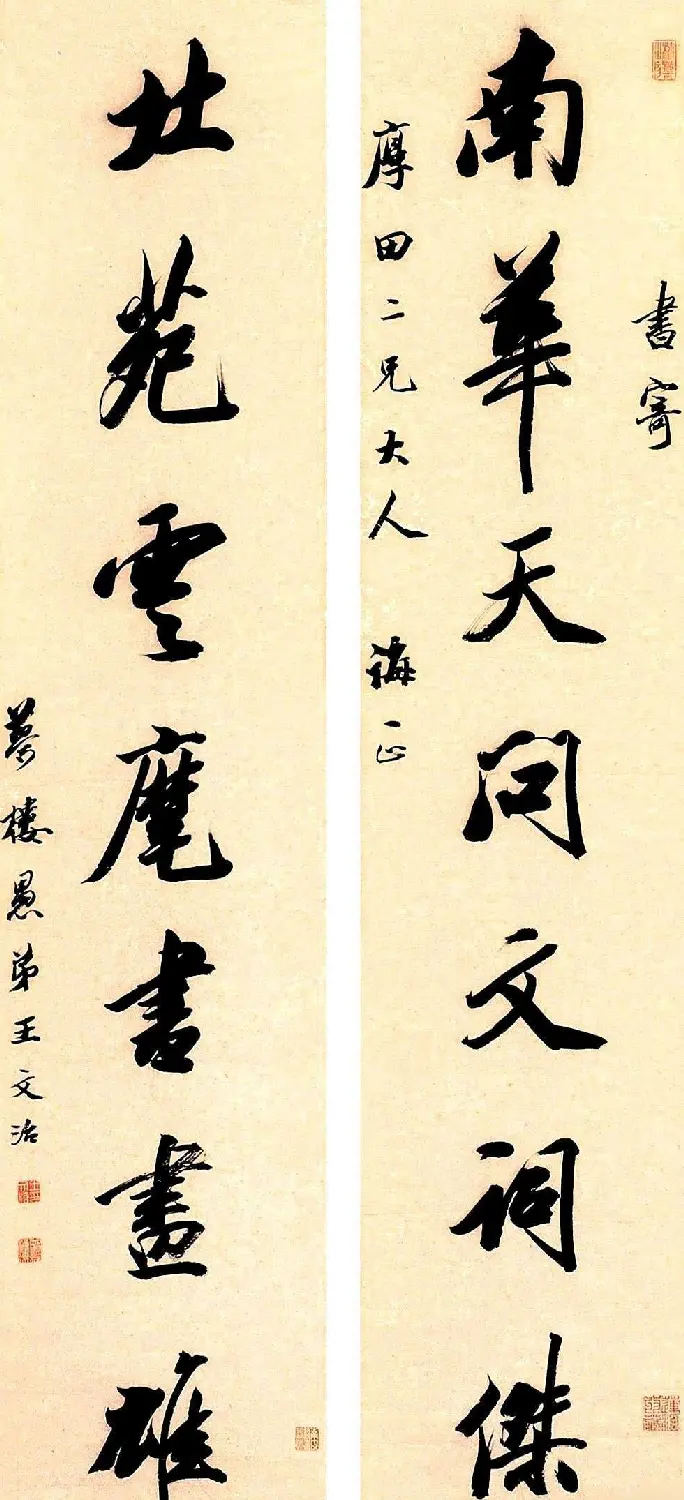 書寄
南華天問文詞傑
厚田二兄大人 誨正
北苑雲麾書畫雄
夢樓愚弟王文治